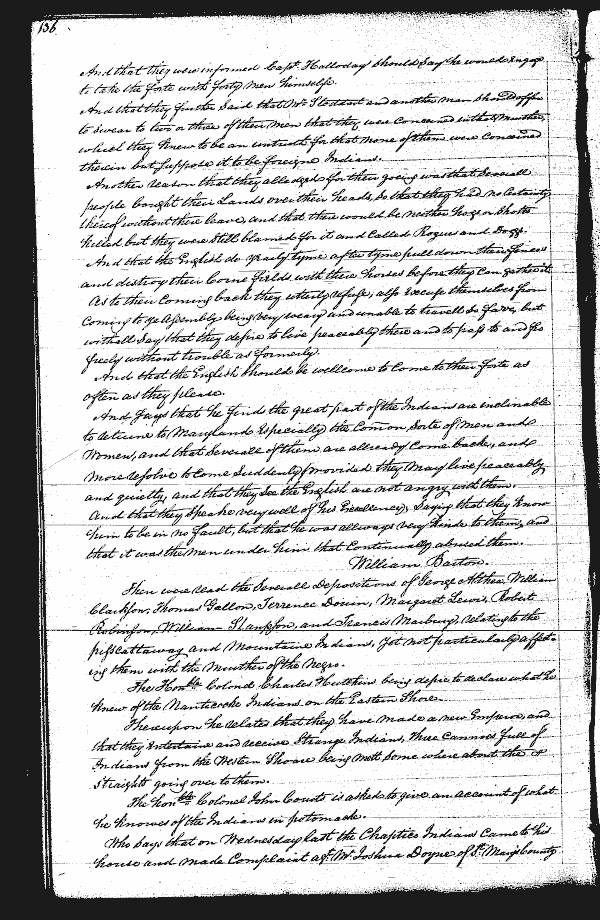 136
And that they were informed Capt. Halloday should say he would engage
to take the forte with forty men himselfe.
And that they further said that Mr Stoddart and another man should offer
to swear to two or three of their men that they were concerned in that Murther,
which they knew to be an untruth for that none of them were concerned
therein but suppose it to be foreigne Indians.
Another reason that they alledged for their going was that severall
people bought their Lands over their heads, so that they had no certainty
thereof without their leave, and that there would be neither hogg or Shotte
killed but they were still blamed for it and called Rogues and Doggs.
And that the English do yearly tyme after tyme pull down their fences
and distroy their corne fields with their horses before they can gather it.
As to their coming back they utterly refuse, also excuse themselves from
coming to ye Assembly being very weary and unable to travell so farr, but
withall say that they desire to live peaceably there and to pass to and fro
freely without trouble as formerly.
And that the English should be wellcome to come to their forte as
often as they please.
And says that he finds the great part of the Indians are inclinable
to returne to Maryland Especially the Comon Sorte of men and
Women, and that Severall of them are allready come backe, and
more resolve to come suddenly provided they may live peaceably
and quietly, and that they see the English are not angry with them.
And that they speake very well of his Excellency, saying that they know
him to be in no fault, but that he was allways very kinde to them, and
that it was the men under him that continually abused them.
William Barton.
Then were read the Severall Depositions of George Athea, William
Clarkson, Thomas Gallon, Terrence Douin, Margaret Lewis, Robert
Robinson, William and Francis Marbury, relating to the
pisscattaway and Mountaine Indians, Yet not particularly affect=
ing them with the Murther of the Negro.
The Honble Colonel Charles Hutchins being desire to declare what he
knew of the Nanticoke Indians on the Eastern Shore.
Thereupon he relates that they have made a new Emperor, and
that they entertaine and receive Strange Indians, three Cannoes full of
Indians from the Western Shoare being mett some where about the
Straights going over to them.
The honble Colonel John Courts is asked to give an account of what
he knowes of the Indians in potomack.
Who says that on Wednesday last the Chaptico Indians came to his
house and made Complaint agt. Mr. Joshua Doyne of St. Marys County